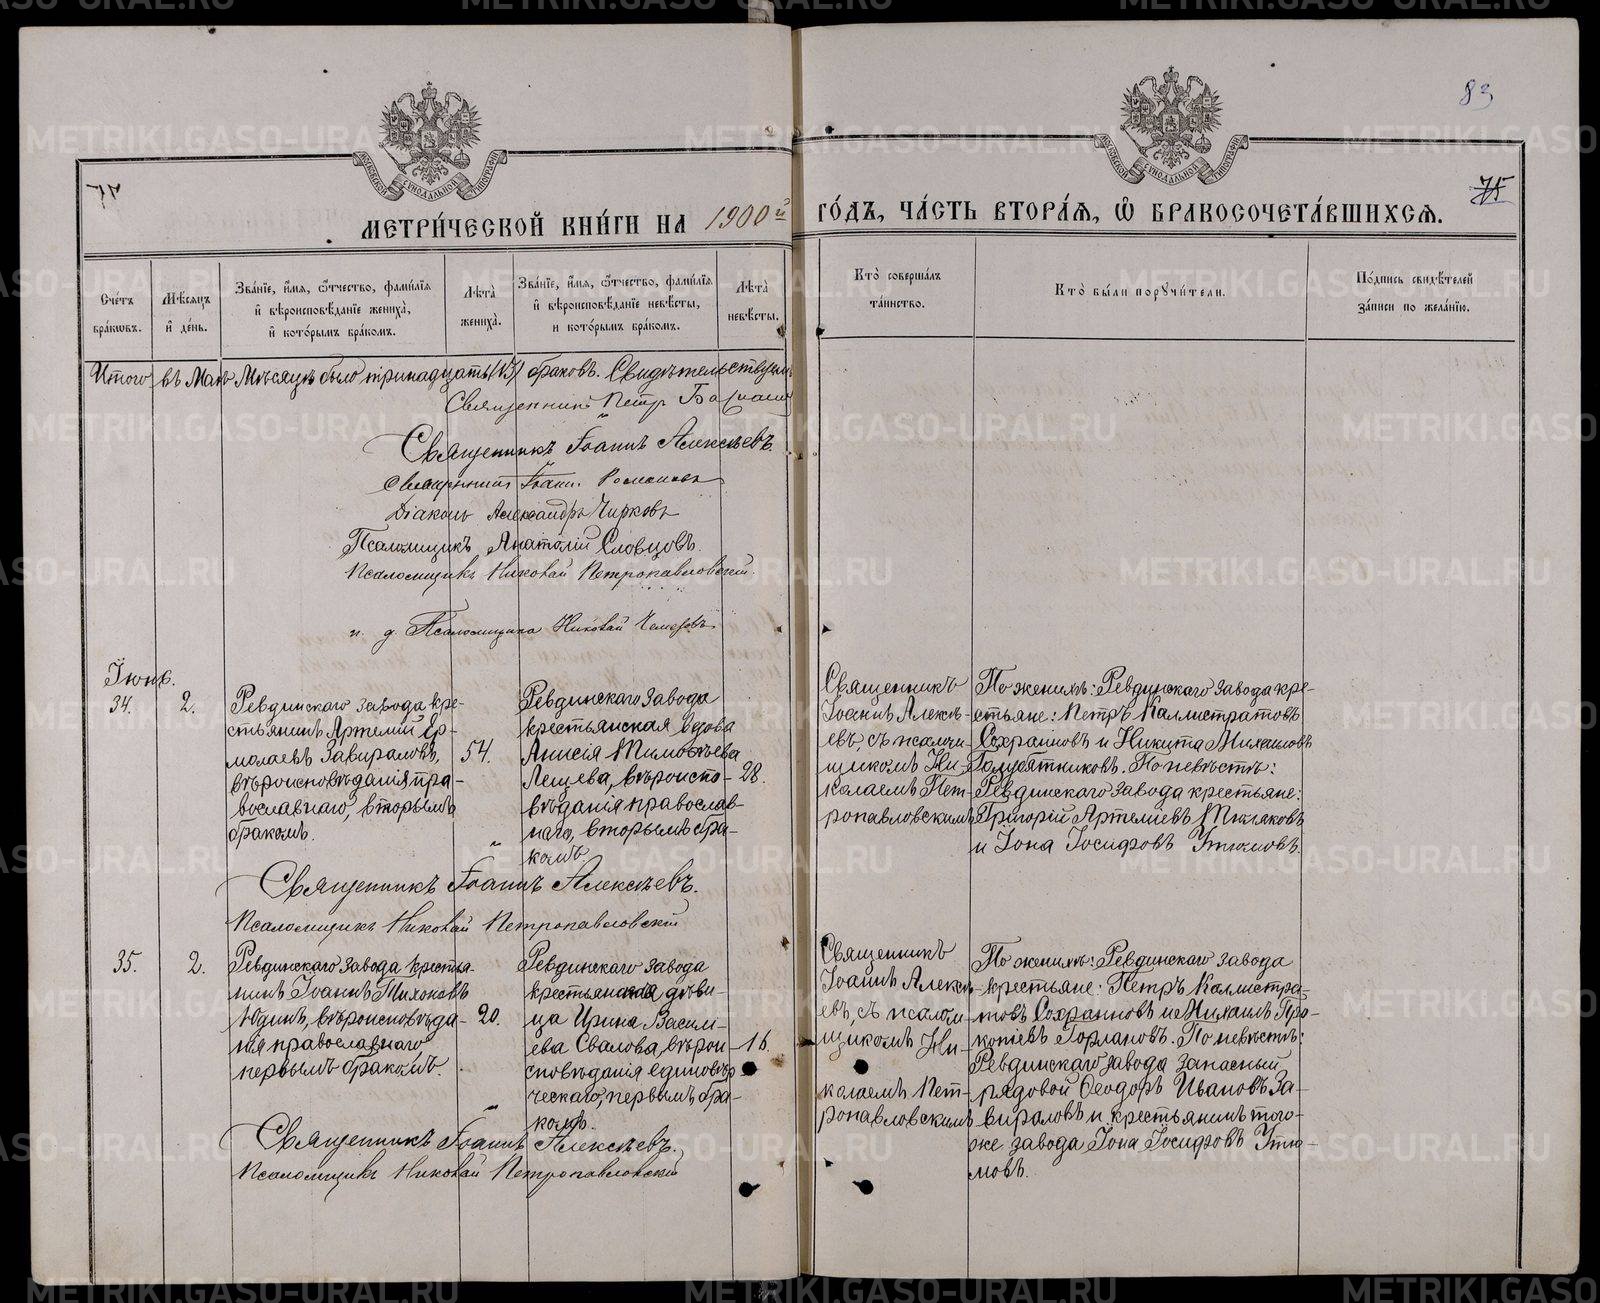 83
75
МЕТРИ́ЧЕСКОЙ КНИ́ГИ НА 1900й ГО́ДЪ, ЧА́СТЬ ВТОРА́Я, Ѡ БРАКОСОЧЕТА́ВШИХСЯ.
Сче́тъ бра́кωвъ.
Мѣ́сяцъ и҆ де́нь.
Зва́нїе, и҆́мя, ѻ҆́тчество, фами́лїя и҆ вѣроисповѣ́данїе жениха̀, и҆ кото́рымъ бра́комъ.
Лѣ́та жениха̀.
Зва́нїе, и҆́мя, ѻ҆́тчество, фами́лїя и҆ вѣроисповѣ́данїе невѣ́сты, и҆ кото́рымъ бра́комъ.
Лѣ́та невѣ́сты.
Кто̀ соверша́лъ та́инство.
Кто̀ бы́ли порꙋчи́тели.
По́дпись свидѣ́телей за́писи по жела́нїю.
Итого въ Маѣ Мѣсяцѣ было тринадцать (13) браковъ. Свидѣтельствуемъ
Священникъ Петръ
Священникъ Іоаннъ Алексѣевъ.
Священникъ Іоаннъ Романовъ
Діаконъ Александръ Чирковъ
Псаломщикъ Анатолій Словцовъ.
Псаломщикъ Николай Петропавловскій.
и. д. Псаломщика Николай Чемезовъ
Іюнь.
34.
2.
Ревдинскаго завода кре-
стьянинъ Артемій Ер-
молаевъ Завираловъ,
вѣроисповѣданія пра-
вославнаго, вторымъ
бракомъ.
54.
Ревдинскаго завода
крестьянская вдова
Анисія Тимоѳѣева
Лещева, вѣроиспо-
вѣданія православ-
наго, вторымъ бра-
комъ
28.
Священникъ
Іоаннъ Алексѣ-
евъ, съ псалом-
щикомъ Ни-
колаемъ Пет-
ропавловскимъ
По женихѣ: Ревдинскаго завода кре-
стьяне: Петръ Каллистратовъ
Сохранновъ и Никита Михаиловъ
Голубятниковъ. По невѣстѣ:
Ревдинскаго завода крестьяне:
Григорій Артемиевъ
и Іона Іосифовъ Утюмовъ.
Священникъ Іоаннъ Алексѣевъ.
Псаломщикъ Николай Петропавловскій
35.
2.
Ревдинскаго завода крестья-
нинъ Іоаннъ Тихоновъ
Юдинъ, вѣроисповѣда-
нія православнаго
первымъ бракомъ.
20.
Ревдинскаго завода
крестьянская дѣви-
ца Ирина Василі-
ева Свалова, вѣрои-
сповѣданія единовѣр-
ческаго, первымъ бра-
комъ.
16.
Священникъ
Іоаннъ Алексѣ-
евъ, съ псалом-
щикомъ Ни-
колаемъ Пет-
ропавловскимъ
По женихѣ: Ревдинскаго завода
крестьяне: Петръ Каллистра-
товъ Сохранновъ и Михаилъ Про-
копіевъ Горлановъ. По невѣстѣ:
Ревдинскаго завода запасный
рядовой Ѳеодоръ Ивановъ За-
вираловъ и крестьянинъ того-
же завода Іона Іосифовъ Утю-
мовъ.
Священникъ Іоаннъ Алексѣевъ.
Псаломщикъ Николай Петропавловскій
METRIKI.GASO-URAL.RU